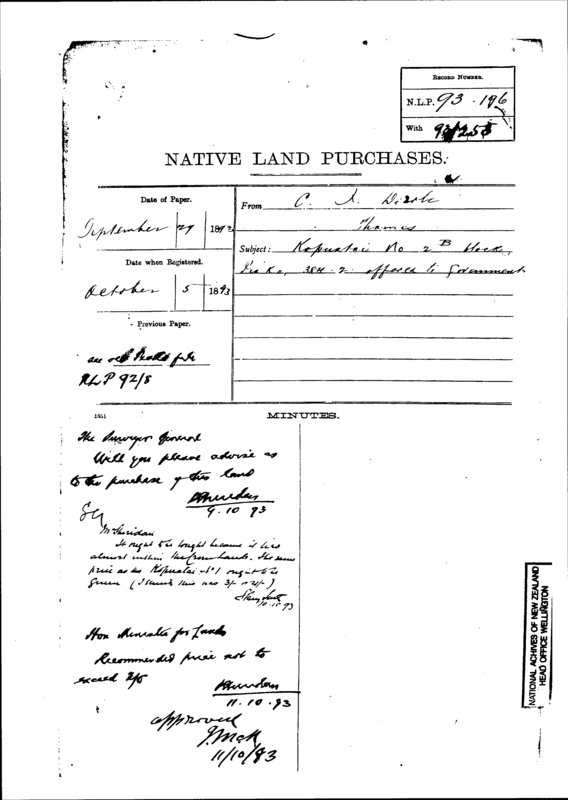 RECORD NUMBER.
N.L.P. 93 . 196
With 93/255
NATIVE LAND PURCHASES.
Date of Paper.
September 29 1892
Date when Registered.
October 5 1893
Previous Paper.
see
NLP 92/8
From C. A.
Thames
Subject: Kopuatai No 2B block,
384 . 2 . offered to Government
1351
MINUTES.
The Surveyor General
Will you please advise as
to the purchase of this land
PSheridan
9.10.93
Mr Sheridan
It ought to be bought because it lies
almost within the Crown lands. The same
price as in Kopuatai No 1 ought to be
given (I think this was
10.10.93
Hon Minister for Lands
Recommended price not to
exceed 2/6
PSheridan
11.10.93
approved
J.McK
11/10/93
NATIONAL ACHIVES OF NEW ZEALAND
HEAD OFFICE WELLINGTON